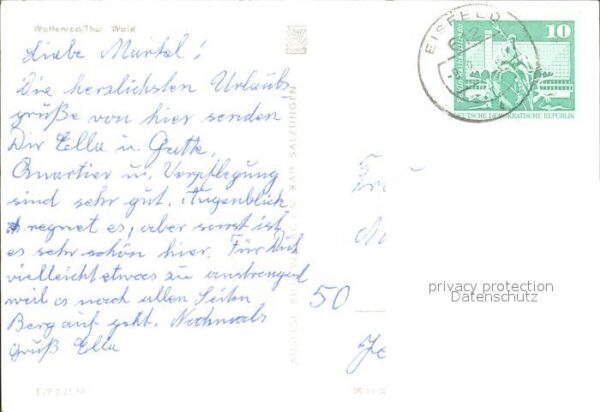 Wolfenroa/Thür. Wald
Liebe Märtel!
Die herzlichsten Urlaubs-
grüße von hier senden
Dir Ella u.
Quartier u. Verpflegung
sind sehr gut. Augenblick
regnet es, aber sonst ist
es sehr schön hier. Für Dich
vielleicht etwas zu anstrengend
weil es nach allen Seiten
Berg auf geht. Nochmals
Gruß Ella
BAD SALZUNGEN
50
EISFELD
10
DEUTSCHE DEMOKRATISCHE REPUBLIK
privacy protection
Datenschutz